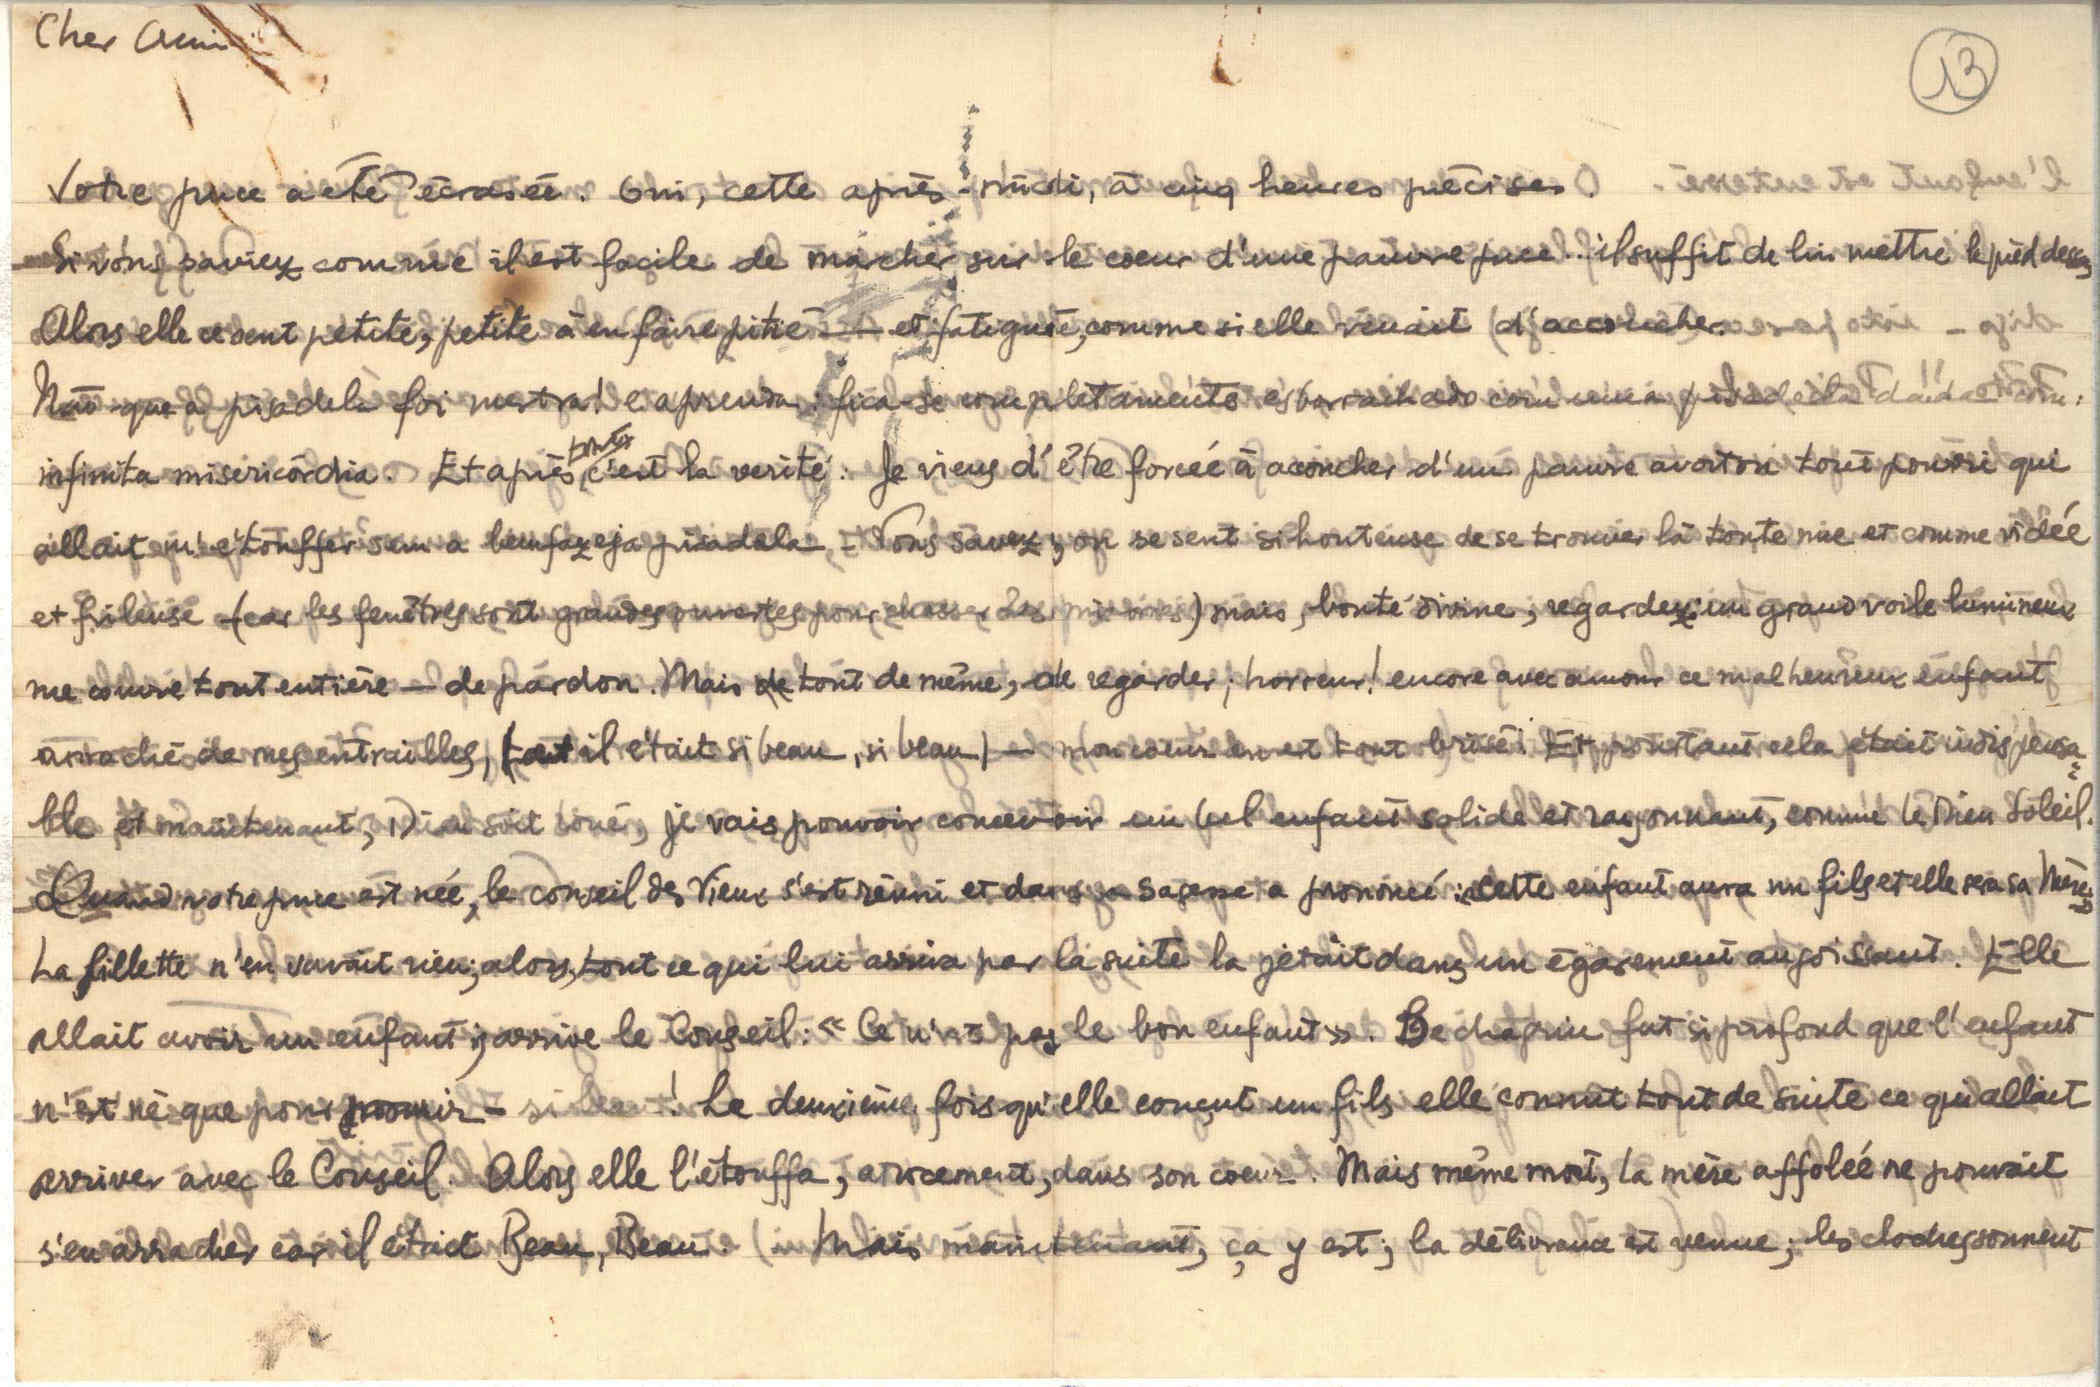 Cher Ami
13
Votre puce a été écrasée. Oui, cette après-midi, à cinq heures précises.
Si vous saviez comme il est facile de marcher sur le coeur d'une pauvre puce.. il suffit de lui mettre le pied dessus
Alors elle se sent petite, petite à en faire pitié — et fatiguée, comme si elle venait d'accoucher.
Não que a pisadela foi mestra! e aprenda: fica-se completamente esborrachado com uma pisadela dada com
infinita misericórdia. Et après c'est la verité: Je viens d'être forcée à accoucher d'un pauvre avorton tout pourri qui
allait m'étouffer sem a benfazeja pisadela - Vous savez, on se sent si honteuse de se trouver là toute nue et comme vidée
et frileuse (car les fenêtres sont grandes ouvertes pour chasser les) mais, bonté divine, regardez: un grand voile lumineux
me couvre tout entière — de pardon. Mais de tout de même, de regarder, horreur! encore avec amour ce malheureux enfant
arraché de mes entrailles, (tant il était si beau, si beau) — mon coeur en est tout brisé! Et pourtant cela était indispensa=
ble et maintenant, Dieu soit loué, je vais pouvoir concevoir un bel enfant solide et rayonnant, comme le Dieu Soleil.
Quand votre puce est née, le conseil des Vieux s'est réuni et dans sa sagesse a prononcé: cette enfant aura un fils et elle sera sa Mère
La fillette n'en savait rien; alors, tout ce qui lui arriva par la suite la jetait dans un égarement angoissant. Elle
allait avoir un enfant; arrive le Conseil: « Ce n'est pas le bon enfant ». Le chagrin fut si profond que l'enfant
n'est né que pour mourir - si beau! La deuxième fois qu'elle conçut un fils elle connut tout de suite ce qui allait
arriver avec le Conseil. Alors elle l'étouffa, atrocement, dans son coeur. Mais même mort, la mère affolée ne pouvait
s'en arracher car il était Beau, Beau. Mais maintenant, ça y est; la délivrance est venue; les cloches sonnent